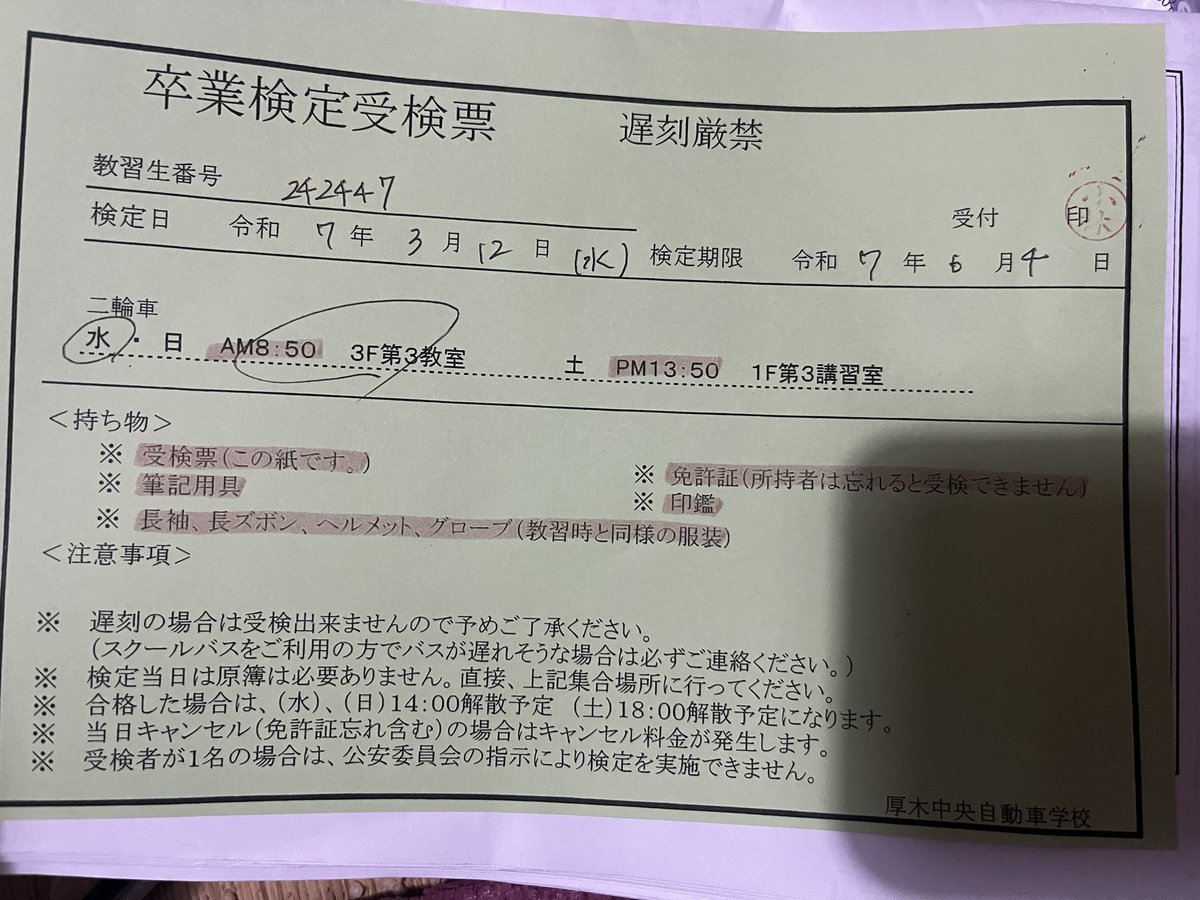 卒業検定受検票 遅刻厳禁
教習生番号 242447
受付 印
検定日 令和 7 年 3 月 12 日 (水) 検定期限 令和 7 年 6 月 4 日
二輪車
水・日 AM8:50 3F第3教室 土 PM13:50 1F第3講習室
＜持ち物＞
※ 受検票(この紙です。) ※ 免許証(所持者は忘れると受検できません)
※ 筆記用具 ※ 印鑑
※ 長袖、長ズボン、ヘルメット、グローブ(教習時と同様の服装)
＜注意事項＞
※ 遅刻の場合は受検出来ませんので予めご了承ください。
(スクールバスをご利用の方でバスが遅れそうな場合は必ずご連絡ください。)
※ 検定当日は原簿は必要ありません。直接、上記集合場所に行ってください。
※ 合格した場合は、(水)、(日)14:00解散予定 (土)18:00解散予定になります。
※ 当日キャンセル(免許証忘れ含む)の場合はキャンセル料金が発生します。
※ 受検者が1名の場合は、公安委員会の指示により検定を実施できません。
厚木中央自動車学校